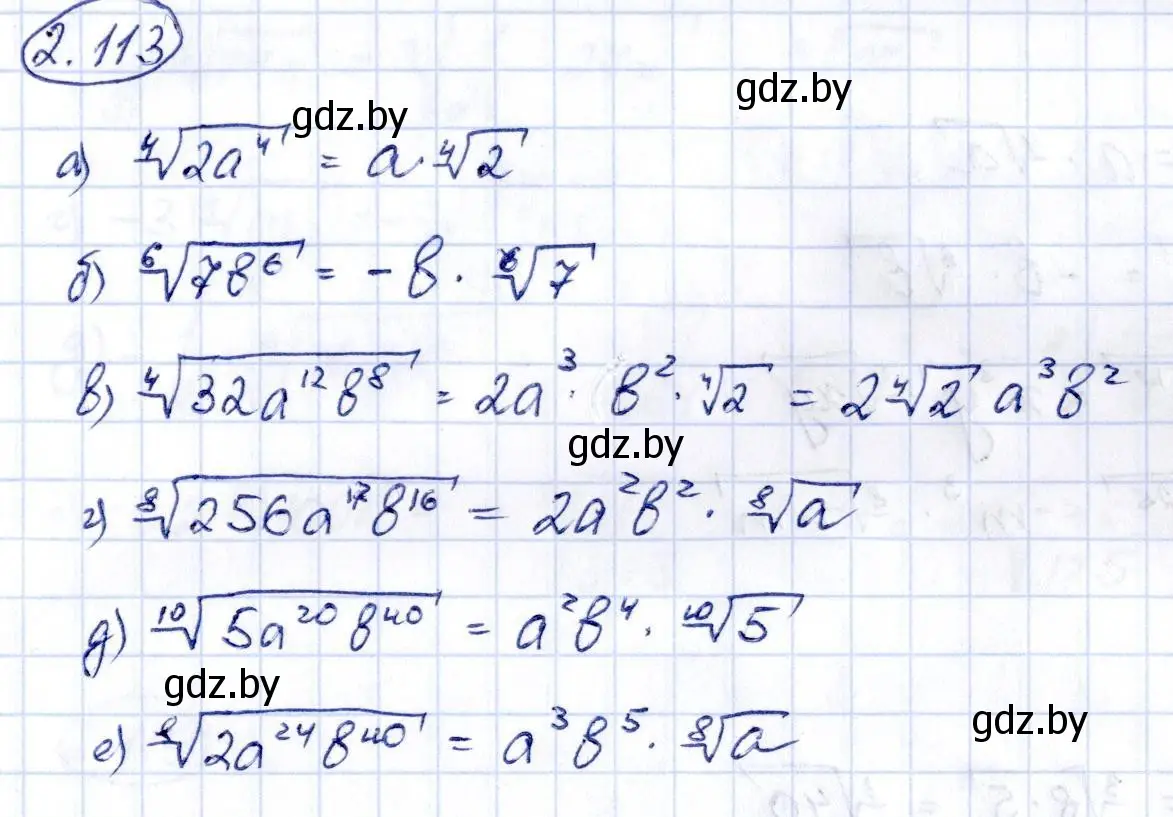 2.113
gdz.by
gdz.by
а) ⁴√(2a⁴) = a·⁴√2
б) ⁶√(7b⁶) = -b·⁶√7
в) ⁴√(32a¹²b⁸) = 2a³·b²·⁴√2 = 2⁴√2 a³b²
gdz.by
г) ⁸√(256a¹⁷b¹⁶) = 2a²b²·⁸√a
д) ¹⁰√(5a²⁰b⁴⁰) = a²b⁴·¹⁰√5
gdz.by
gdz.by
е) ⁸√(2a²⁴b⁴⁰) = a³b⁵·⁸√a